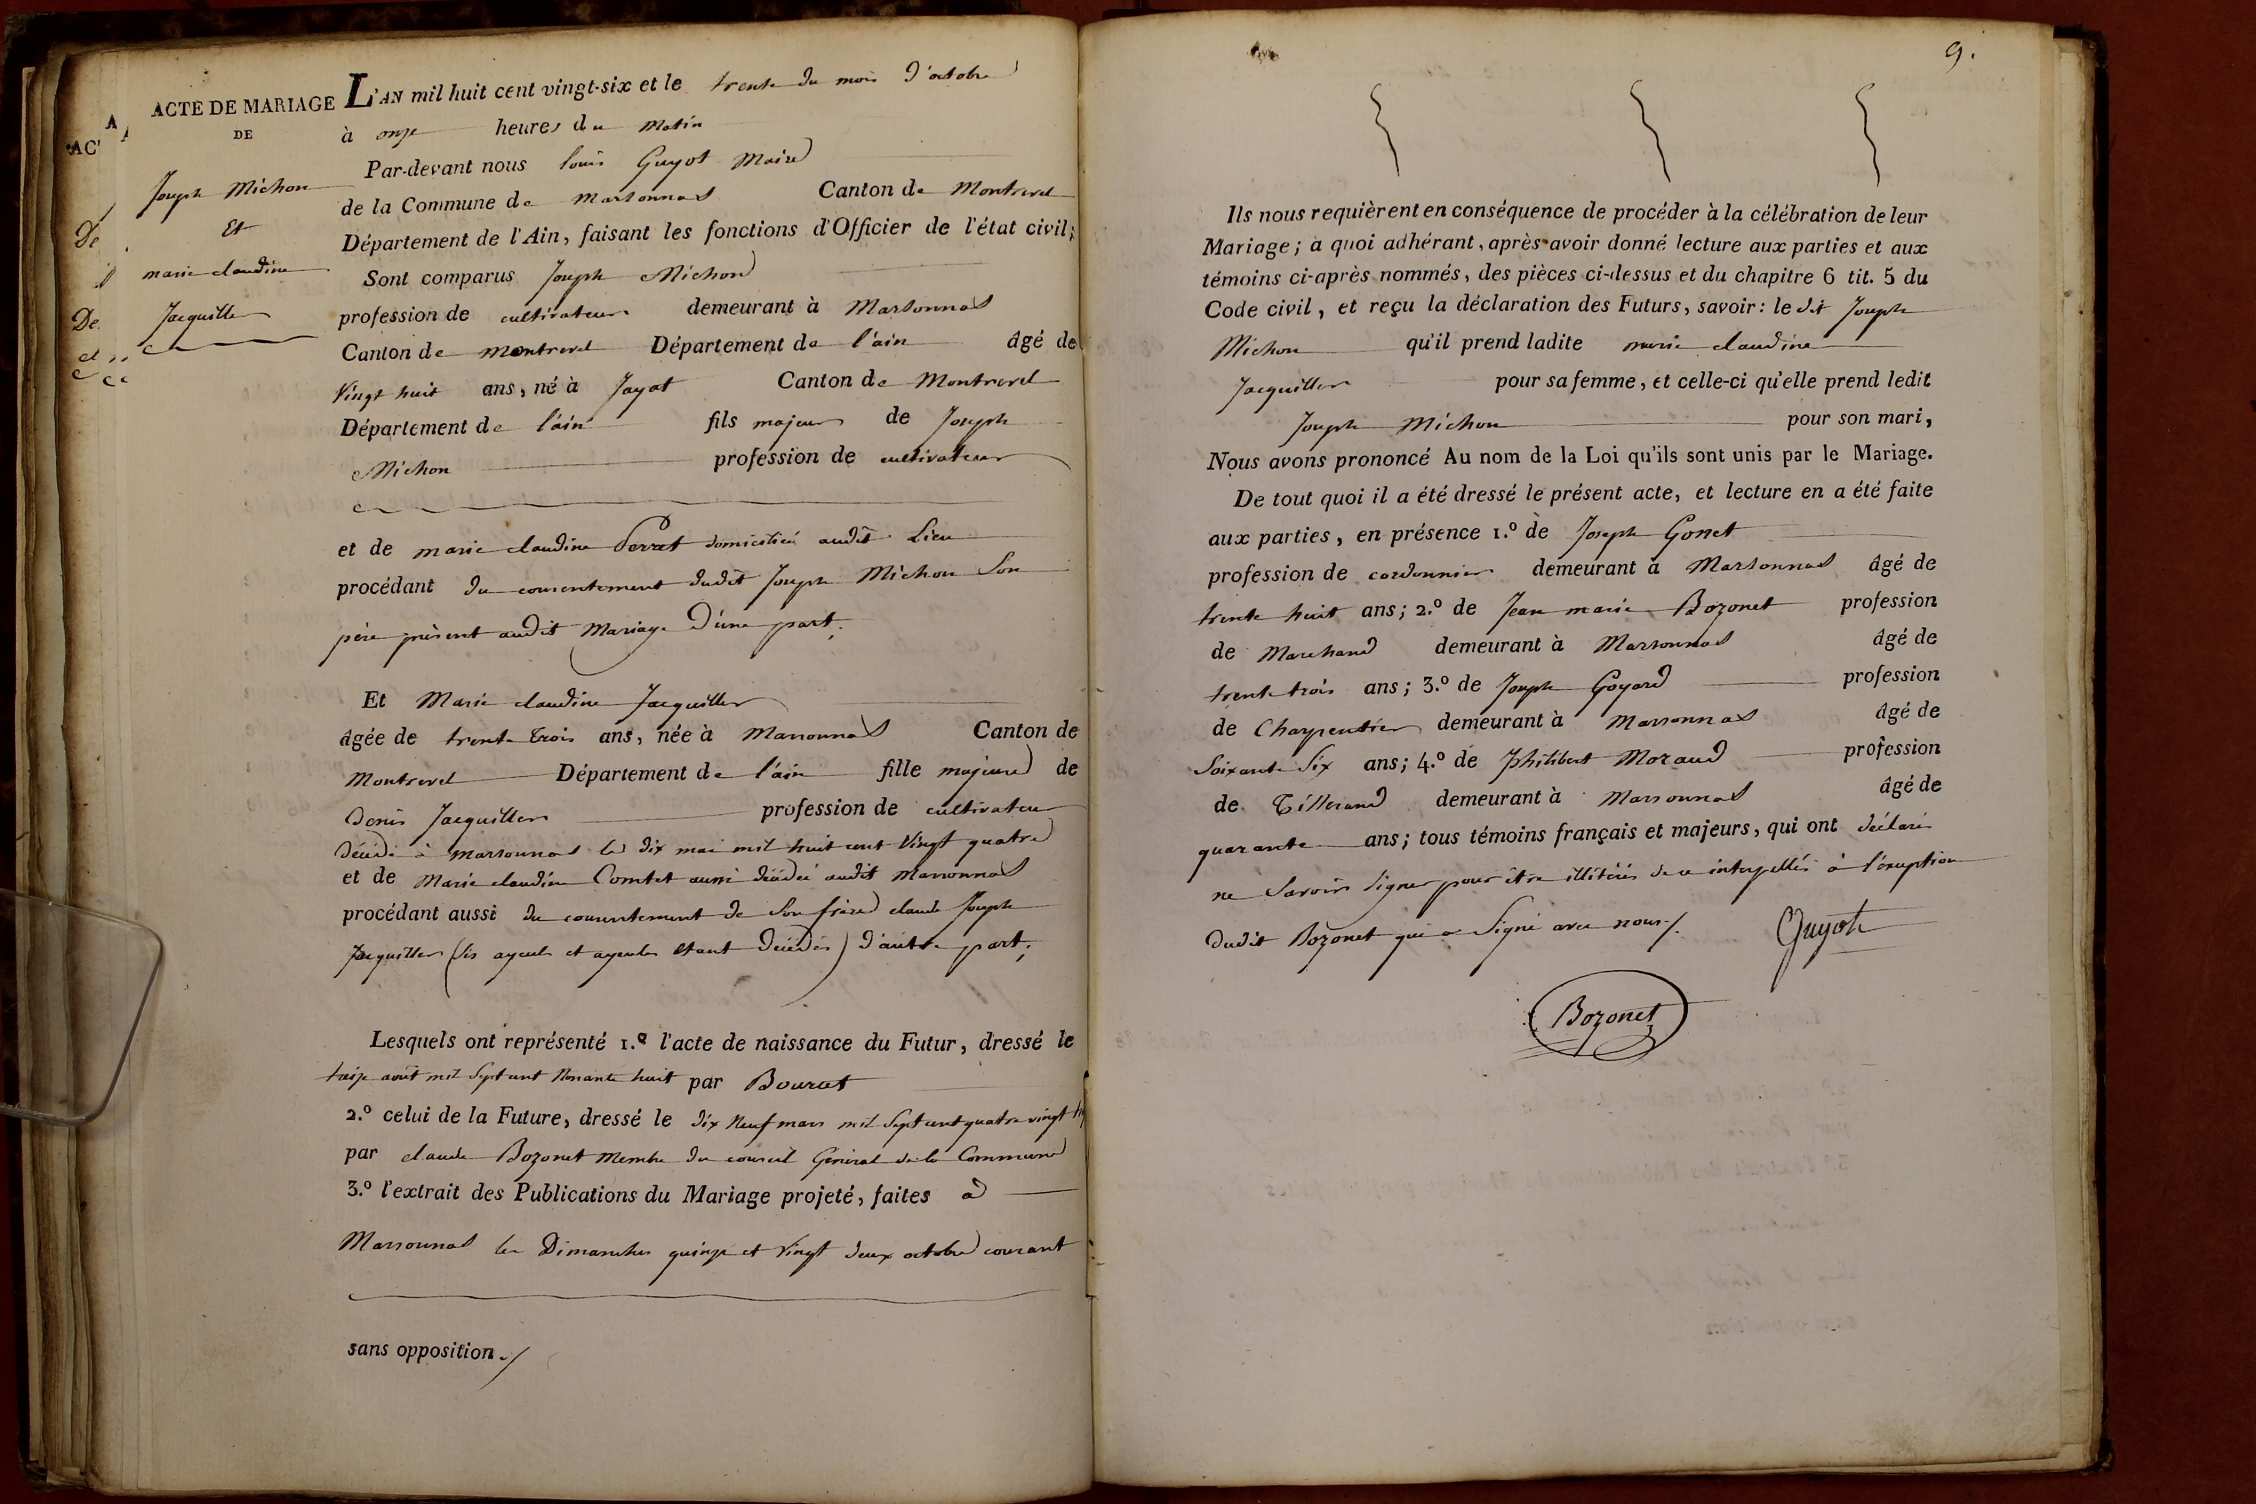 ACTE DE MARIAGE
DE
Joseph Michon
Et
marie claudine
Jacquiller
L'AN mil huit cent vingt-six et le trente du mois d'octobre
à onze heures du matin
Par-devant nous louis Guyot Maire
de la Commune de Marsonnas Canton de Montrevel
Département de l'Ain, faisant les fonctions d'Officier de l'état civil;
Sont comparus Joseph Michon
profession de cultivateur demeurant à Marsonnas
Canton de montrevel Département de l'ain âgé de
Vingt huit ans, né à Jayat Canton de Montrevel
Département de l'ain fils majeur de Joseph
Michon profession de cultivateur
et de marie claudine Perret domiciliés audit Lieu
procédant du consentement dudit Joseph Michon Son
père présent audit Mariage D'une part;
Et Marie claudine Jacquiller
âgée de trente trois ans, née à Marsonnas Canton de
Montrevel Département de l'ain fille majeure de
Denis Jacquiller profession de cultivateur
décédé à marsonnas le dix mai mil huit cent Vingt quatre
et de Marie claudine Comtet aussi décédée audit Marsonnas
procédant aussi du consentement de Son frère claude Joseph
Jacquiller (ses ayeuls et ayeules étant décédés) d'autre part;
Lesquels ont représenté 1.º l'acte de naissance du Futur, dressé le
treize août mil Sept cent Nonante huit par Bourcet
2.º celui de la Future, dressé le dix Neuf mars mil Sept cent quatre vingt
par claude Bozonet Membre du conseil Général de la Commune
3.º l'extrait des Publications du Mariage projeté, faites à
Marsonnas les Dimanches quinze et Vingt deux octobre courant
sans opposition./
9.
Ils nous requièrent en conséquence de procéder à la célébration de leur
Mariage; à quoi adhérant, après avoir donné lecture aux parties et aux
témoins ci-après nommés, des pièces ci-dessus et du chapitre 6 tit. 5 du
Code civil, et reçu la déclaration des Futurs, savoir: le dit Joseph
Michon qu'il prend ladite marie claudine
Jacquiller pour sa femme, et celle-ci qu'elle prend ledit
Joseph Michon pour son mari,
Nous avons prononcé Au nom de la Loi qu'ils sont unis par le Mariage.
De tout quoi il a été dressé le présent acte, et lecture en a été faite
aux parties, en présence 1.º de Joseph Gonet
profession de cordonnier demeurant à Marsonnas âgé de
trente huit ans; 2.º de Jean marie Bozonet profession
de Marchand demeurant à Marsonnas âgé de
trente trois ans; 3.º de Joseph Goyard profession
de Charpentier demeurant à Marsonnas âgé de
Soixante Six ans; 4.º de Philibert Morand profession
de Tisserand demeurant à Marsonnas âgé de
quarante ans; tous témoins français et majeurs, qui ont déclaré
ne Savoir Signer pour être illitérés de ce interpellés à l'exception
dudit Bozonet qui a Signé avec nous./. Guyot
Bozonet